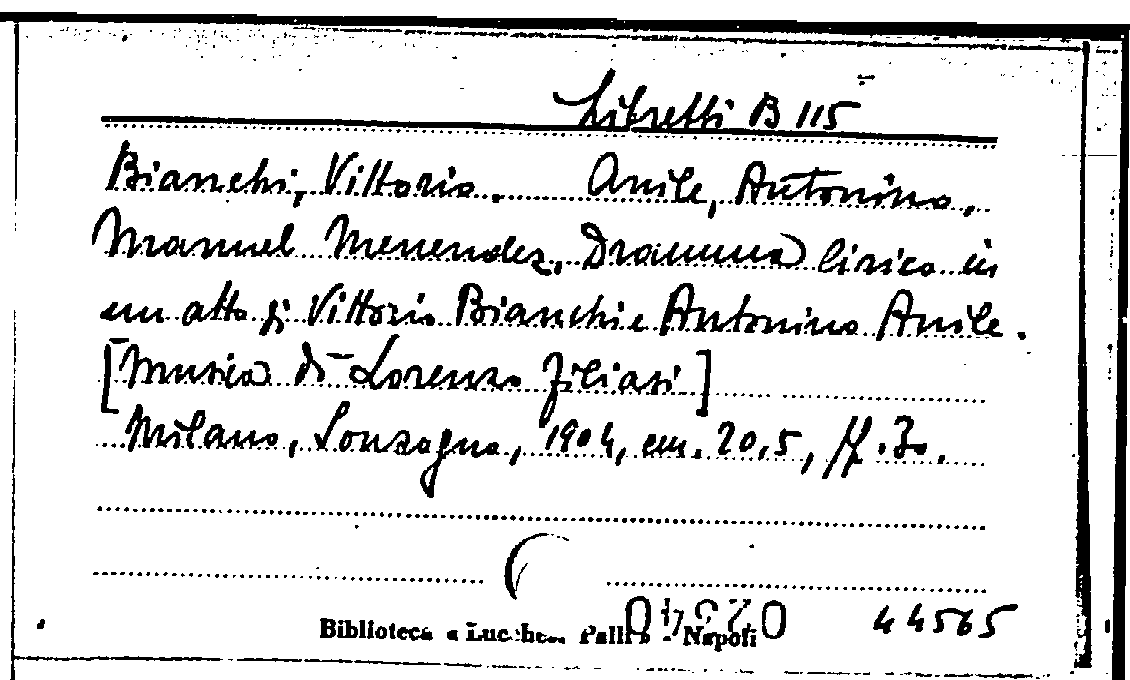 Libretti B 115
Bianchi, Vittorio. Anile, Antonino.
Manuel Menendez. Dramma lirico in
un atto di Vittorio Bianchi e Antonino Anile.
[Musica di Lorenzo Filiasi]
Milano, Sonzogno, 1904, cm. 20,5, ff. 30.
Biblioteca Lucchesi Palli - Napoli
44565